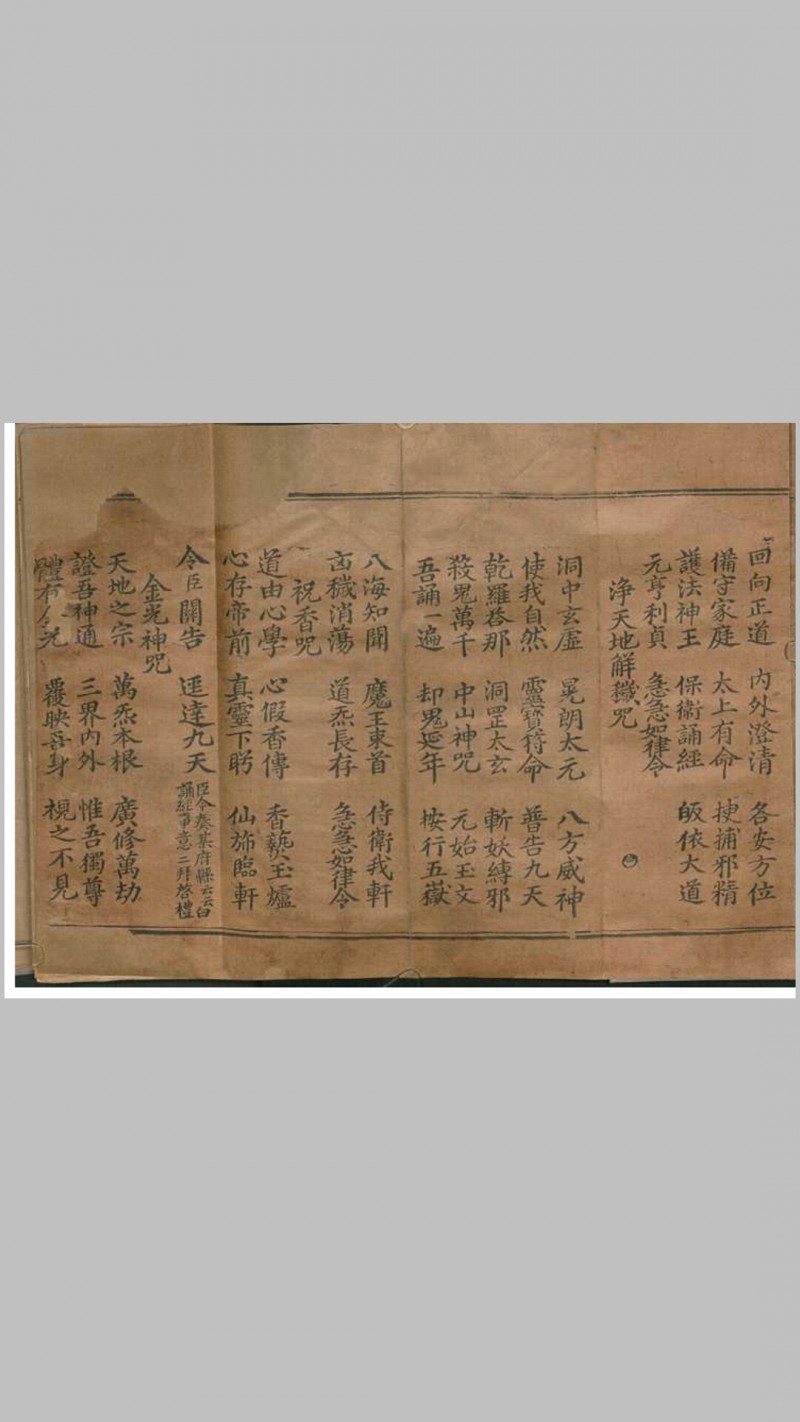 回向正道 內外澄清 各安方位
備守家庭 太上有命 搜捕邪精
護法神王 保衛誦經 皈依大道
元亨利貞 急急如律令
淨天地解穢咒
洞中玄虛 晃朗太元 八方威神
使我自然 靈寶符命 普告九天
乾羅荅那 洞罡太玄 斬妖縛邪
殺鬼萬千 中山神咒 元始玉文
吾誦一遍 却鬼延年 按行五嶽
八海知聞 魔王束首 侍衛我軒
凶穢消蕩 道炁長存 急急如律令
祝香咒
道由心學 心假香傳 香爇玉爐
心存帝前 真靈下盻 仙旆臨軒
令臣關告 逕達九天 臣今奏某府縣云云白
誦經事意二拜啓禮
金光神咒
天地之宗 萬炁本根 廣修萬劫
證吾神通 三界內外 惟吾獨尊
體有金光 覆映吾身 視之不見